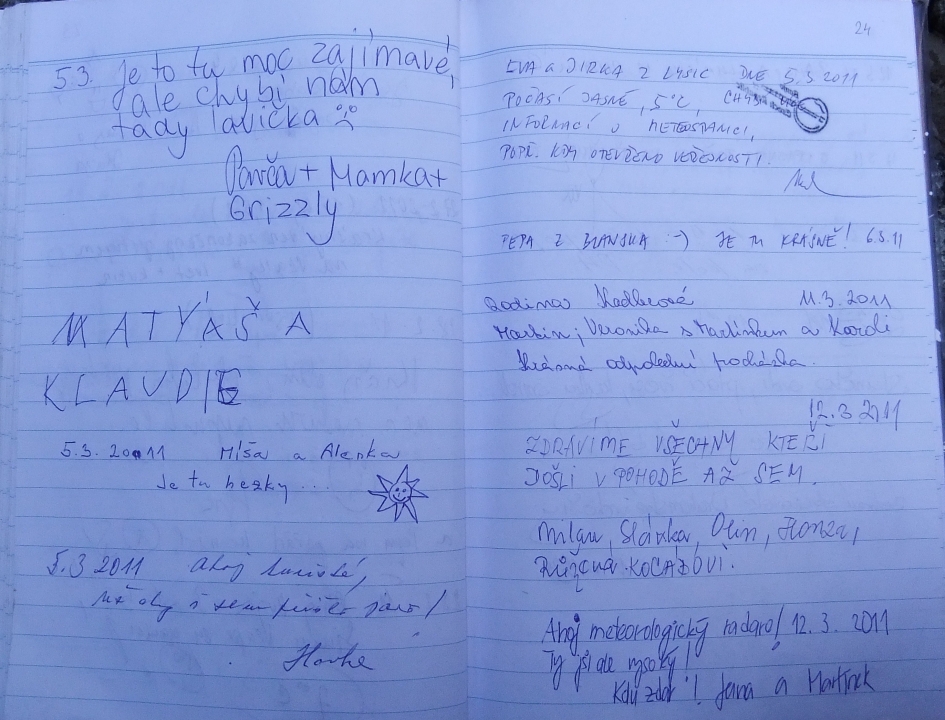 5.3. Je to tu moc zajímavé,
ale chybí nám
tady lavička
Pavča + Mamka +
Grizzly
MATÝÁŠ A
KLAUDIE
5.3. 2011 Míša a Alenka
Je tu hezky...
5.3 2011 Ahoj
24
EVA a JIRKA Z LYSIC DNE 5.3.2011
POČASÍ JASNÉ, 5°C, CHYBÍ
INFORMACÍ O METEOSTANICI,
POPŘ. KDY OTEVŘENO VEŘEJNOSTI.
PEPA Z BLANSKA :-) JE TU KRÁSNĚ! 6.3.11
Rodina 11.3.2011
Martin, Veronika s Martínkem a
Krásná odpolední procházka.
12.3 2011
ZDRAVÍME VŠECHNY KTEŘÍ
DOŠLI V POHODĚ AŽ SEM.
Milan, Slávka, Olin, Honza,
Růžena
Ahoj meteorologický radaro! 12. 3. 2011
Ty jsi ale vysoký!
Kdy zdar! Jana a Martínek